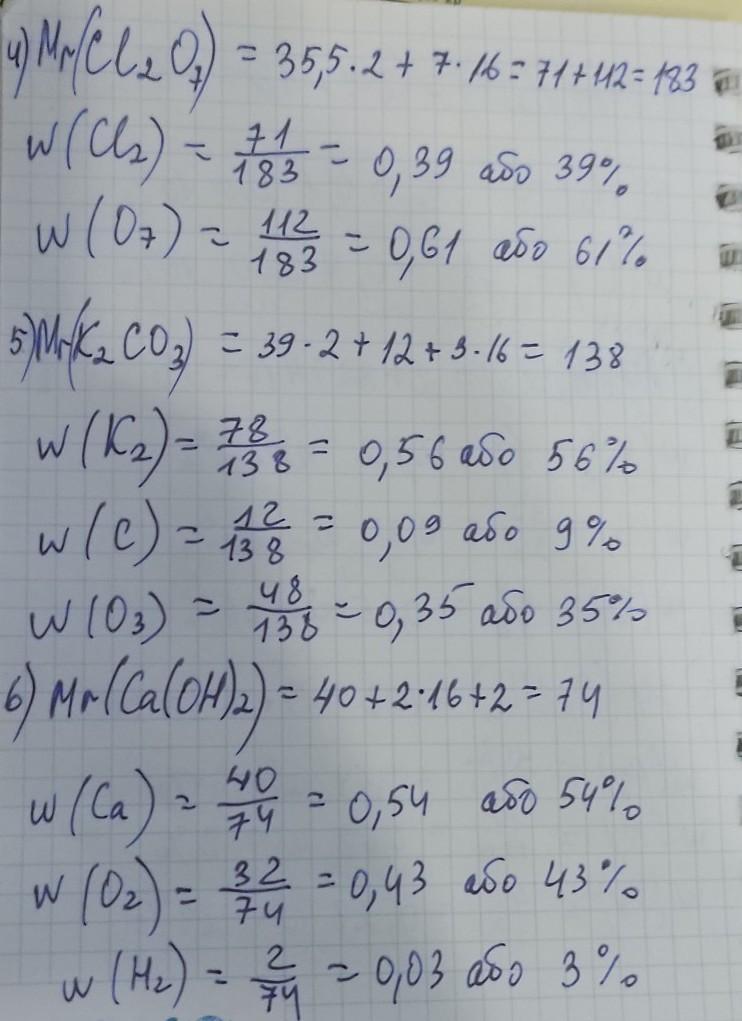 4) Mr(Cl₂O₇) = 35,5·2 + 7·16 = 71 + 112 = 183
W(Cl₂) = 71/183 = 0,39 або 39%
W(O₇) = 112/183 = 0,61 або 61%
5) Mr(K₂CO₃) = 39·2 + 12 + 3·16 = 138
W(K₂) = 78/138 = 0,56 або 56%
W(C) = 12/138 = 0,09 або 9%
W(O₃) = 48/138 = 0,35 або 35%
6) Mr(Ca(OH)₂) = 40 + 2·16 + 2 = 74
W(Ca) = 40/74 = 0,54 або 54%
W(O₂) = 32/74 = 0,43 або 43%
W(H₂) = 2/74 = 0,03 або 3%